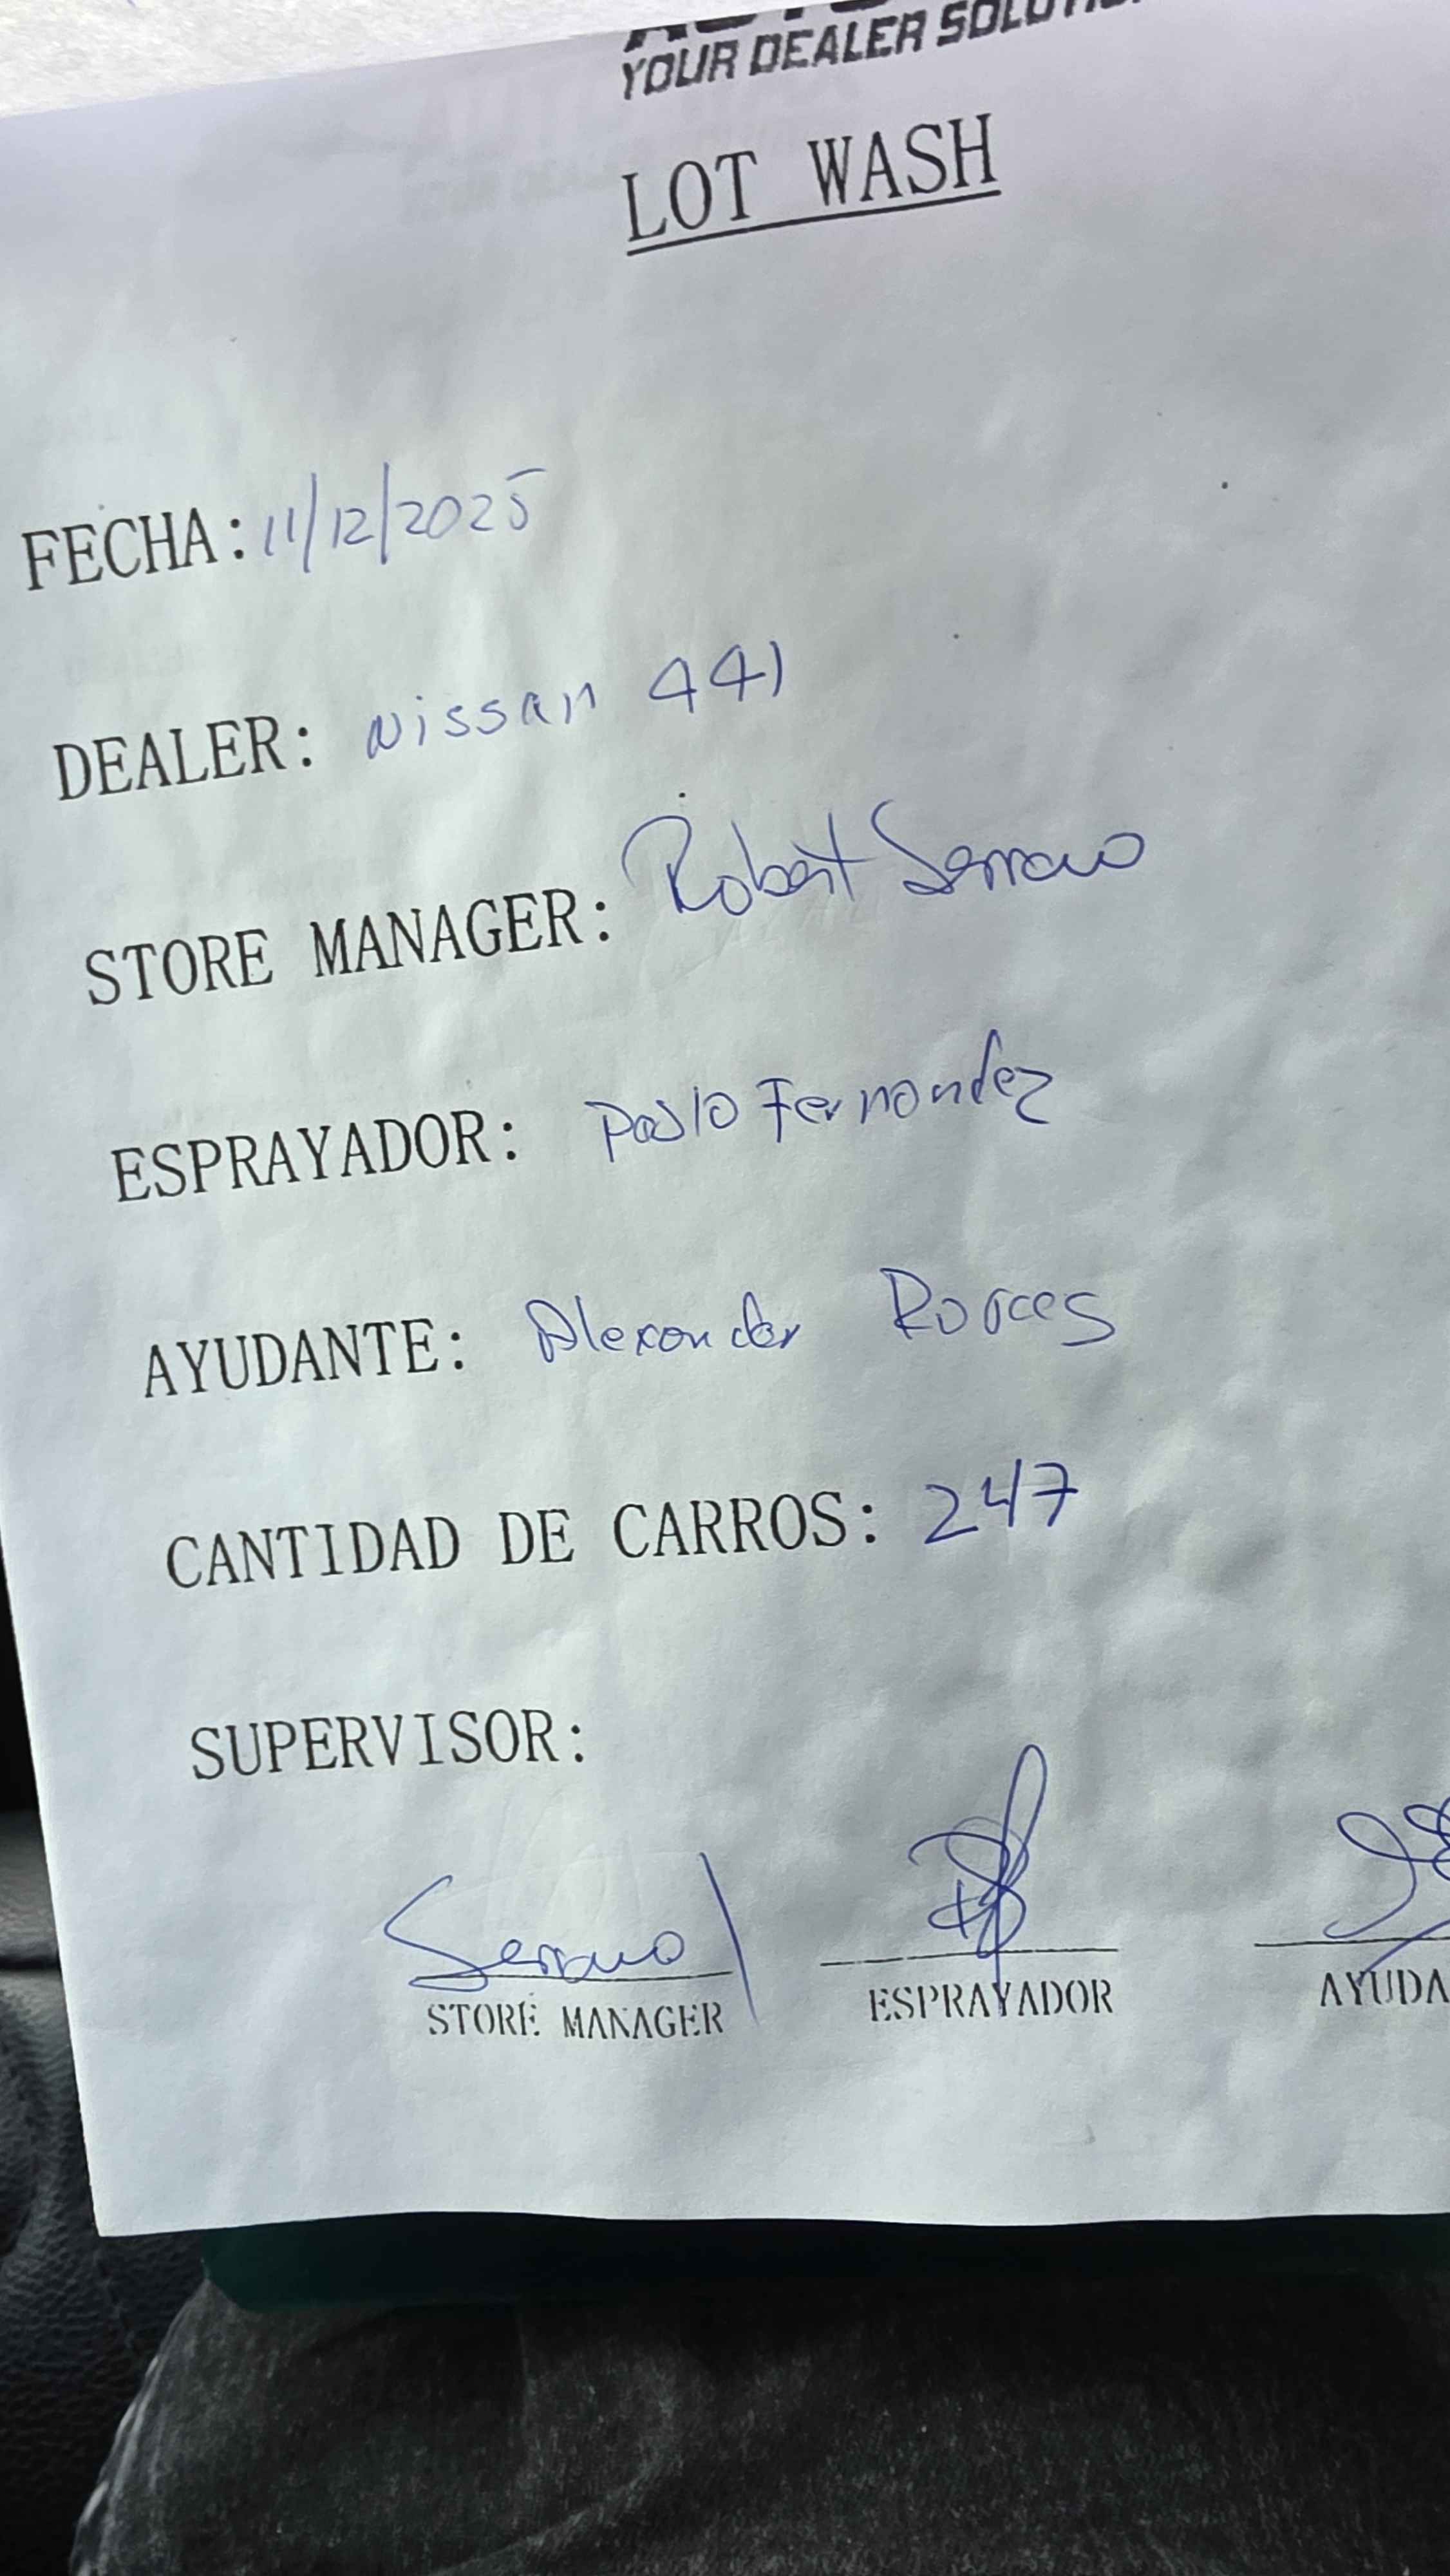 YOUR DEALER SOLUTION
LOT WASH
FECHA: 11/12/2025
DEALER: Nissan 441
STORE MANAGER: Robert Serrano
ESPRAYADOR: Pablo Fernandez
AYUDANTE: Alexander
CANTIDAD DE CARROS: 247
SUPERVISOR:
Serrano
STORE MANAGER ESPRAYADOR AYUDA